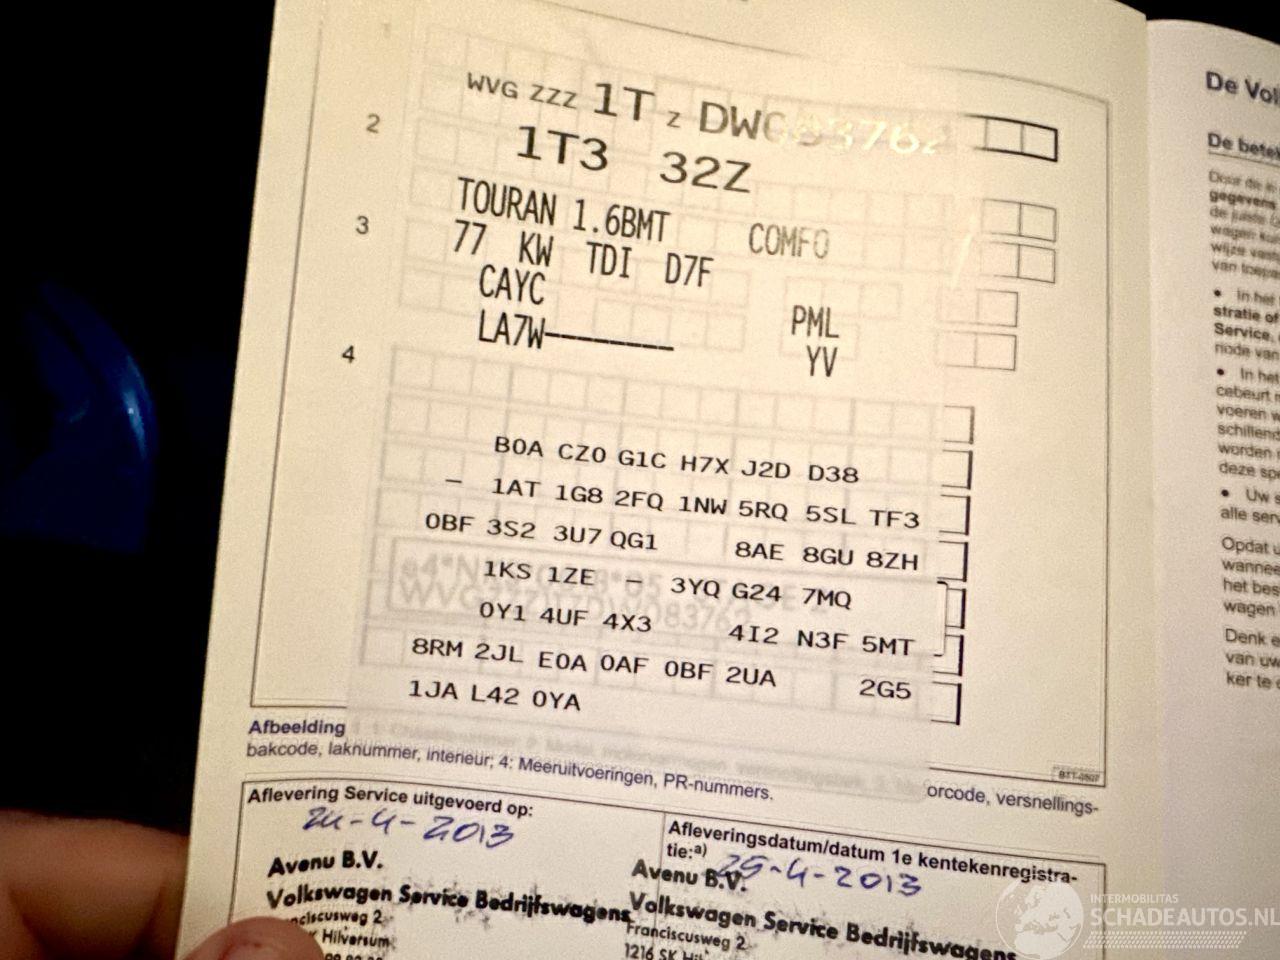 WVG ZZZ 1T Z DW083762
2
1T3 32Z
TOURAN 1.6BMT COMFO
3
77 KW TDI D7F
CAYC PML
LA7W YV
4
B0A CZ0 G1C H7X J2D D38
– 1AT 1G8 2FQ 1NW 5RQ 5SL TF3
0BF 3S2 3U7 QG1 8AE 8GU 8ZH
1KS 1ZE – 3YQ G24 7MQ
0Y1 4UF 4X3 4I2 N3F 5MT
8RM 2JL E0A 0AF 0BF 2UA 2G5
1JA L42 0YA
BTT-0507
Afbeelding orcode, versnellings-
bakcode, laknummer, interieur; 4: Meeruitvoeringen, PR-nummers.
Aflevering Service uitgevoerd op:
24-4-2013
Avenu B.V.
Volkswagen Service Bedrijfswagens
nciscusweg 2
Hilversum
Afleveringsdatum/datum 1e kentekenregistra-
tie:a)
25-4-2013
Avenu B.V.
Volkswagen Service Bedrijfswagens
Franciscusweg 2
1216 SK Hil
De Vol
De betek
Door de in
gegevens
de juiste
wagen kun
wijze vast
van toepa
• In het
stratie of
Service,
riode van
• In het
gebeurt
voeren w
schillend
worden
deze sp
• Uw s
alle serv
Opdat u
wannee
het bes
wagen
Denk e
van uw
ker te
INTERMOBILITAS
SCHADEAUTOS.NL